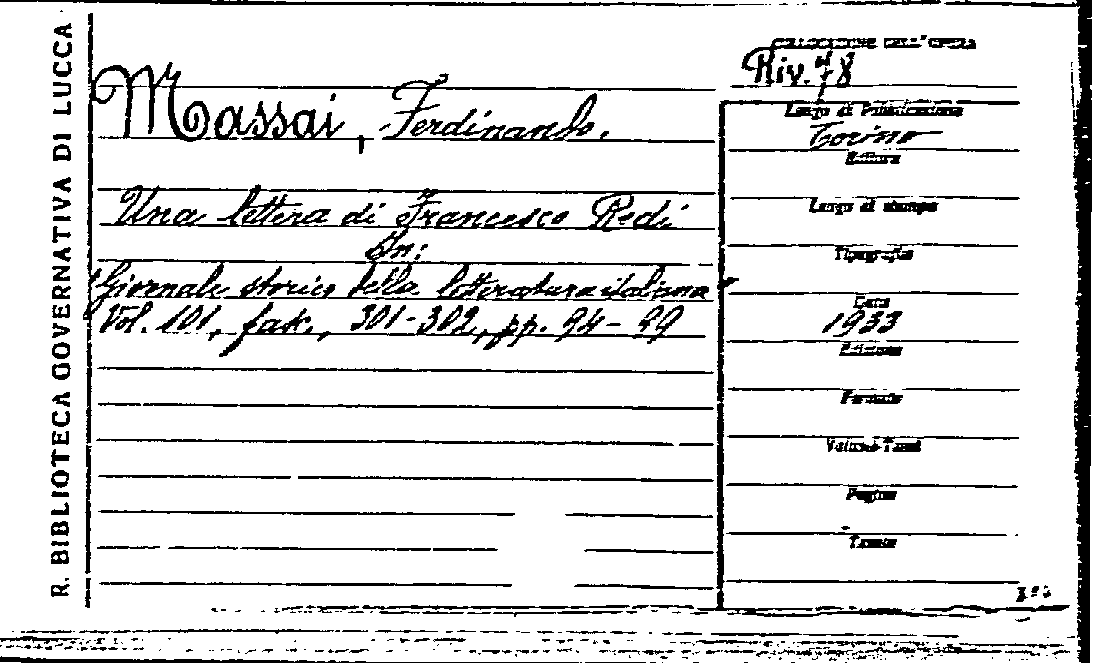 R. BIBLIOTECA GOVERNATIVA DI LUCCA
COLLOCAZIONE DELL'OPERA
Riv. 78
Massai, Ferdinando.
Una lettera di Francesco Redi
In:
"Giornale storico della letteratura italiana"
Vol. 101, fasc., 301-302, pp. 94-99
Luogo di Pubblicazione
Torino
Editore
Luogo di stampa
Tipografia
Data
1933
Edizione
Formato
Volumi-Tomi
Pagine
Tavole